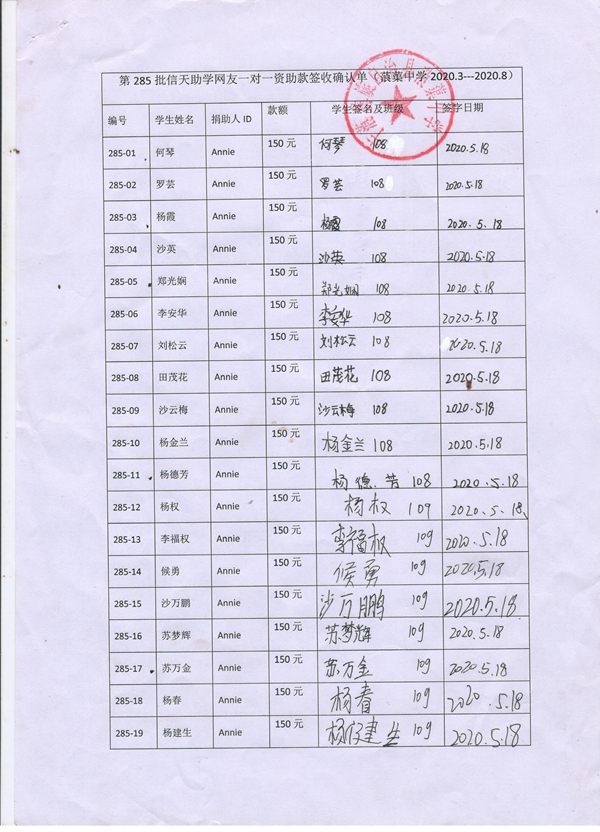 第 285 批信天助学网友一对一资助款签收确认单（蒗蕖中学 2020.3---2020.8）
编号 学生姓名 捐助人 ID 款额 学生签名及班级 签字日期
285-01 何琴 Annie 150 元 何琴 108 2020.5.18
285-02 罗芸 Annie 150 元 罗芸 108 2020.5.18
285-03 杨霞 Annie 150 元 杨霞 108 2020.5.18
285-04 沙英 Annie 150 元 沙英 108 2020.5.18
285-05 郑光娴 Annie 150 元 郑光娴 108 2020.5.18
285-06 李安华 Annie 150 元 李安华 108 2020.5.18
285-07 刘松云 Annie 150 元 刘松云 108 2020.5.18
285-08 田茂花 Annie 150 元 田茂花 108 2020.5.18
285-09 沙云梅 Annie 150 元 沙云梅 108 2020.5.18
285-10 杨金兰 Annie 150 元 杨金兰 108 2020.5.18
285-11 杨德芳 Annie 150 元 杨德芳 108 2020.5.18
285-12 杨权 Annie 150 元 杨权 109 2020.5.18
285-13 李福权 Annie 150 元 李福权 109 2020.5.18
285-14 候勇 Annie 150 元 候勇 109 2020.5.18
285-15 沙万鹏 Annie 150 元 沙万鹏 109 2020.5.18
285-16 苏梦辉 Annie 150 元 苏梦辉 109 2020.5.18
285-17 苏万金 Annie 150 元 苏万金 109 2020.5.18
285-18 杨春 Annie 150 元 杨春 109 2020.5.18
285-19 杨建生 Annie 150 元 杨建生 109 2020.5.18